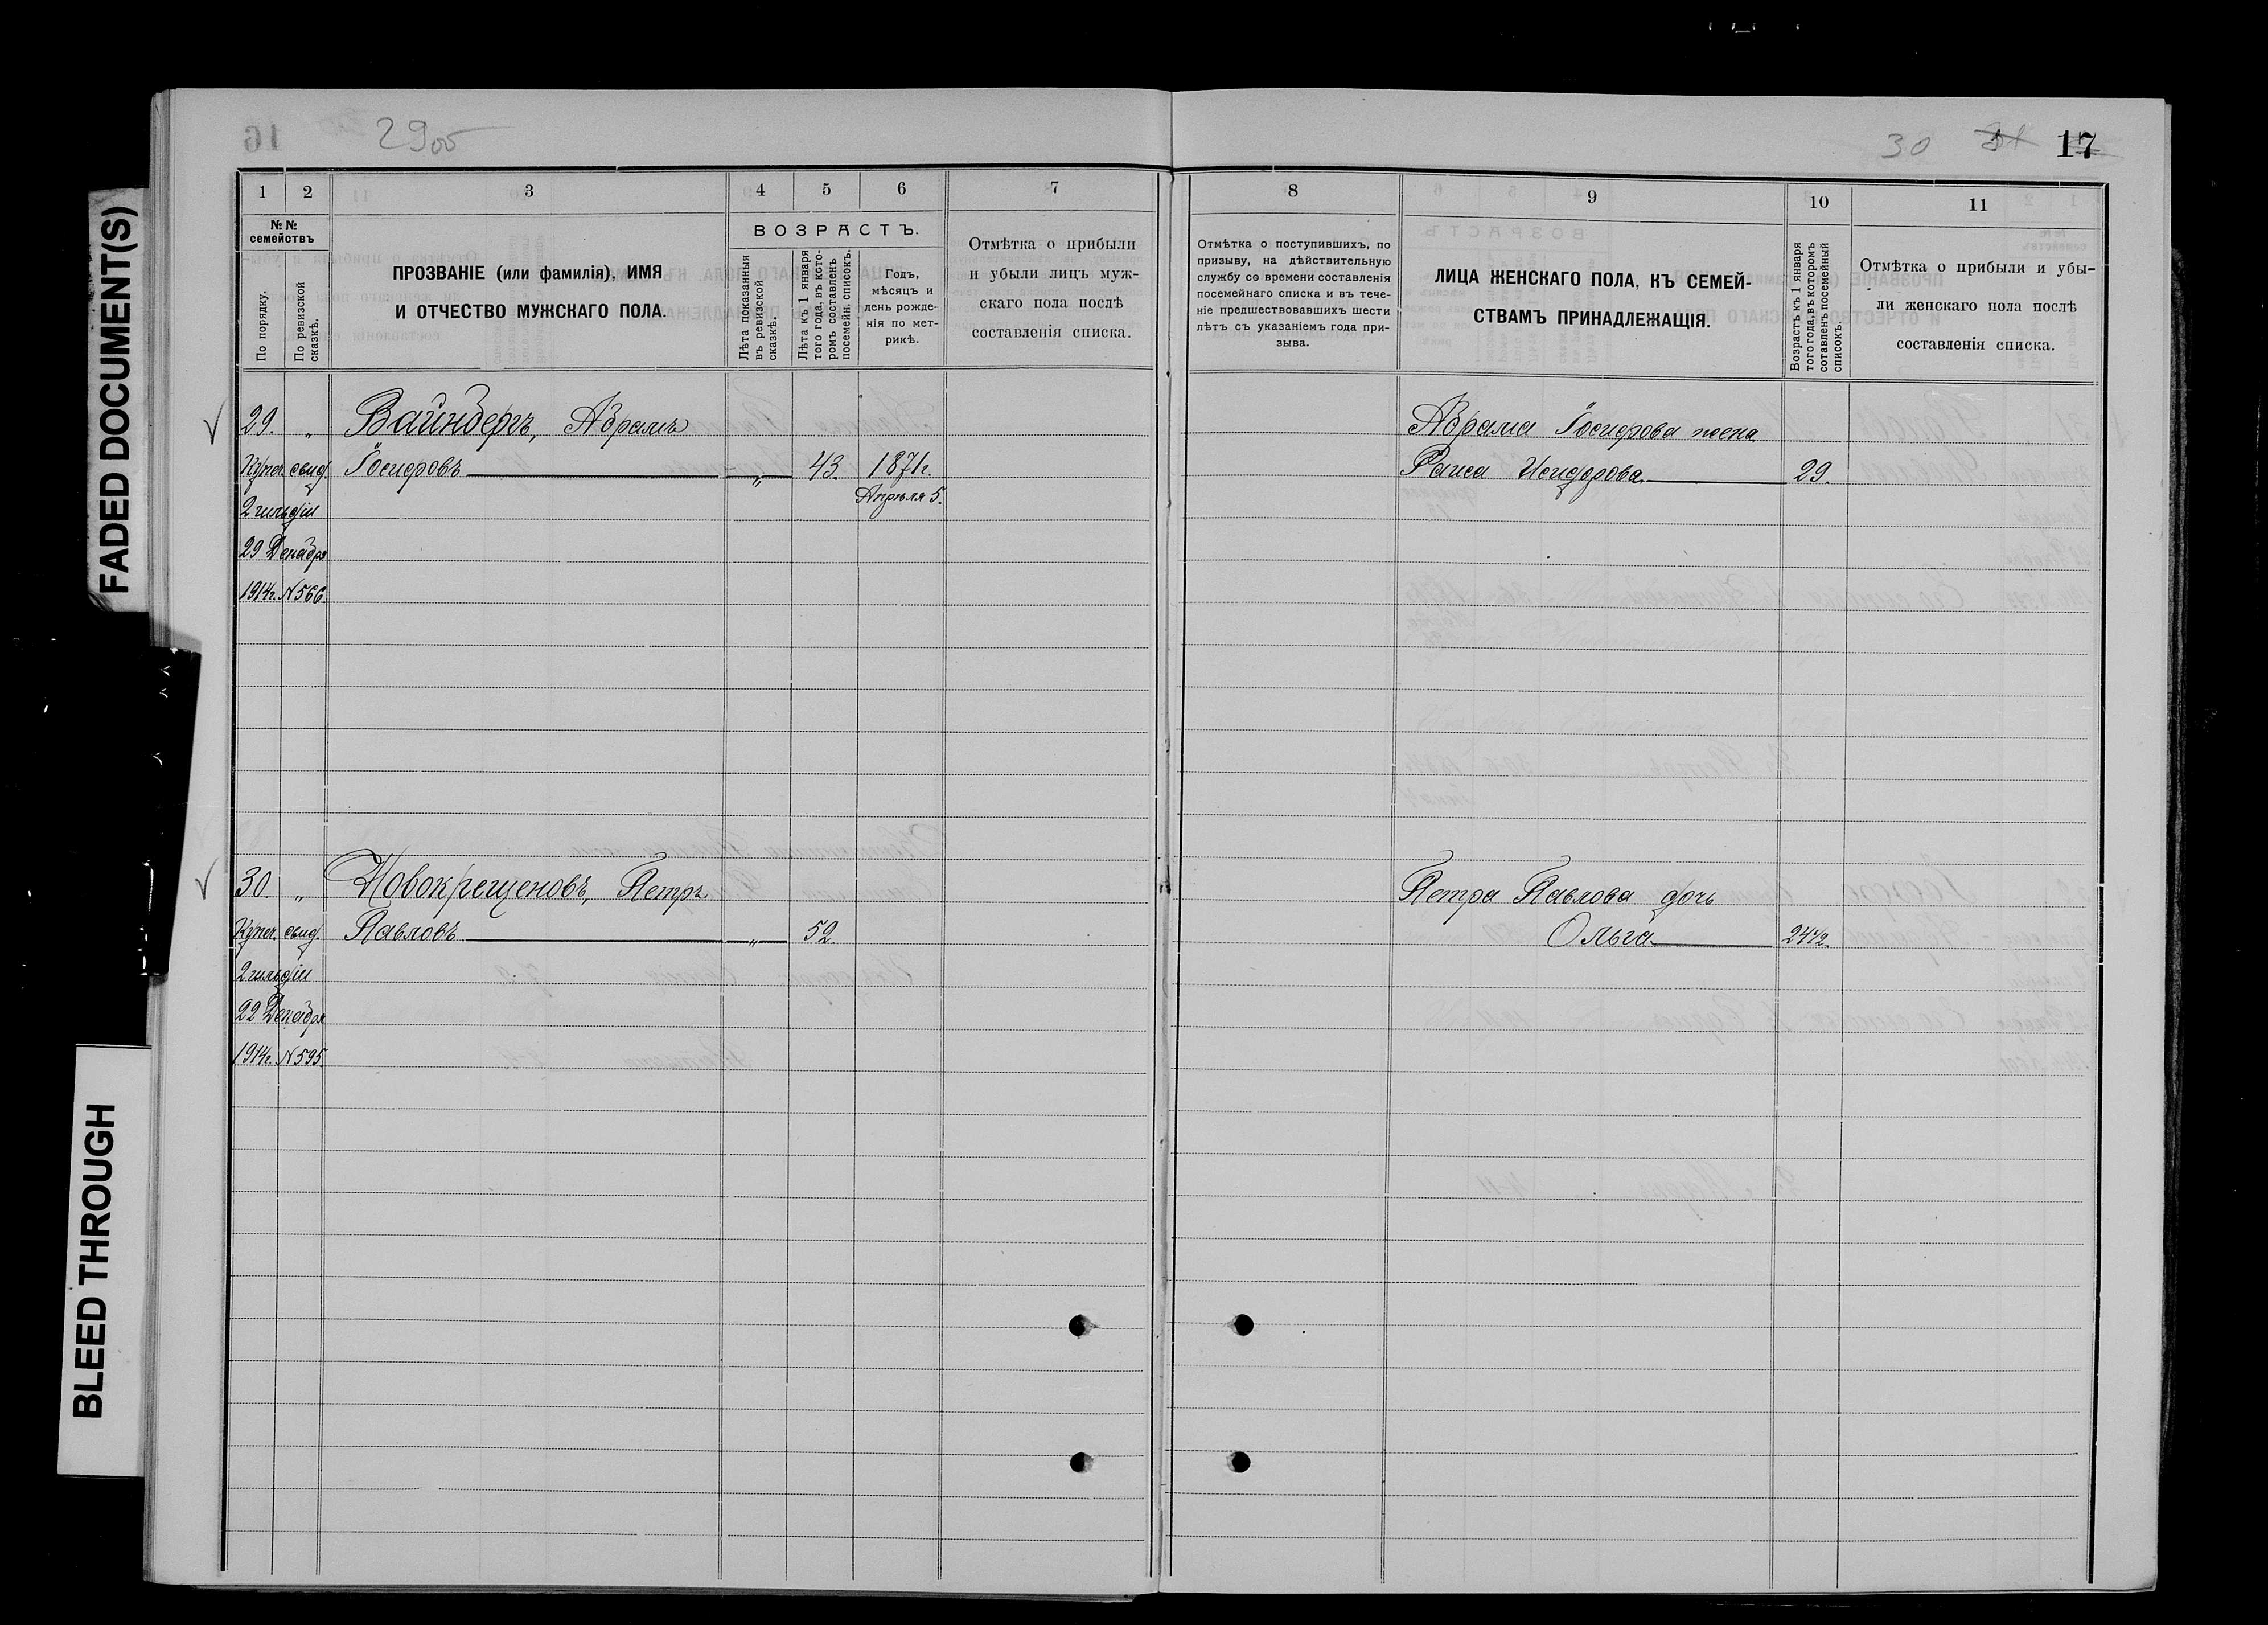 FADED DOCUMENT(S)
BLEED THROUGH
29об
30
17
1 2 3 4 5 6 7
№№ семействъ
По порядку.
По ревизской сказкѣ.
ПРОЗВАНІЕ (или фамилія), ИМЯ
И ОТЧЕСТВО МУЖСКАГО ПОЛА.
ВОЗРАСТЪ.
Лѣта показанныя
въ ревизской
сказкѣ.
Лѣта къ 1 января
того года, въ кото-
ромъ составленъ
посемейн. списокъ.
Годъ,
мѣсяцъ и
день рожде-
нія по мет-
рикѣ.
Отмѣтка о прибыли
и убыли лицъ муж-
скаго пола послѣ
составленія списка.
29. „ Вайнбергъ, Абрамъ
Купеч. свид. Іосифовъ „ 43. 1871г.
Апрѣля 5.
2 гильдіи
29 Декабря
1914г. №566.
30. „ Новокрещеновъ, Петръ
Купеч. свид. Павловъ „ 52
2 гильдіи
22 Декабря
1914г. №595.
8 9 10 11
Отмѣтка о поступившихъ, по
призыву, на дѣйствительную
службу со времени составленія
посемейнаго списка и въ тече-
ніе предшествовавшихъ шести
лѣтъ съ указаніемъ года при-
зыва.
ЛИЦА ЖЕНСКАГО ПОЛА, КЪ СЕМЕЙ-
СТВАМЪ ПРИНАДЛЕЖАЩІЯ.
Возрастъ къ 1 января
того года, въ которомъ
сотавленъ посемейный
списокъ.
Отмѣтка о прибыли и убы-
ли женскаго пола послѣ
составленія списка.
Абрама Іосифова жена
Раиса Исидорова 29.
Петра Павлова дочь
Ольга 24½.